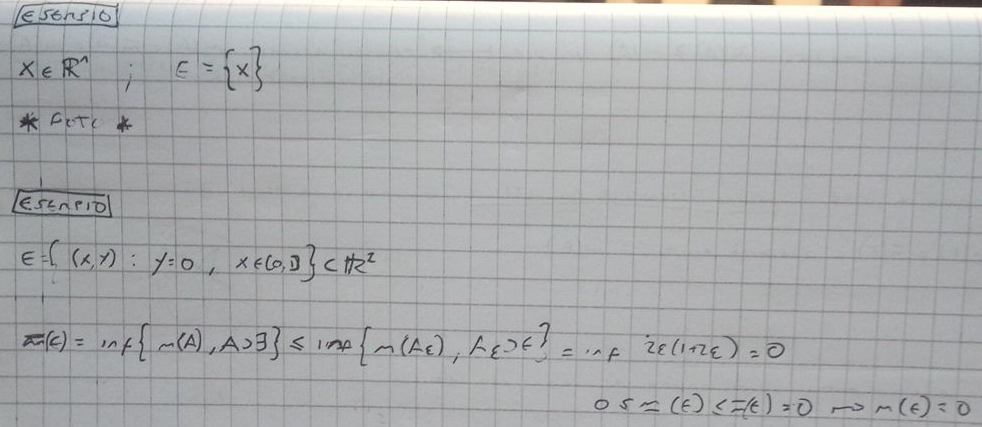 ESEMPIO
x ∈ ℝⁿ ; E = {x}
* *
ESEMPIO
E = { (x,y) : y=0 , x∈[0,1] } ⊂ ℝ²
m̅(E) = inf{ m(A), A⊃E } ≤ inf{ m(Aε), Aε⊃E } = inf 2ε(1+2ε) = 0
0 ≤ m̲(E) ≤ m̅(E) = 0 ⇝ m(E) = 0